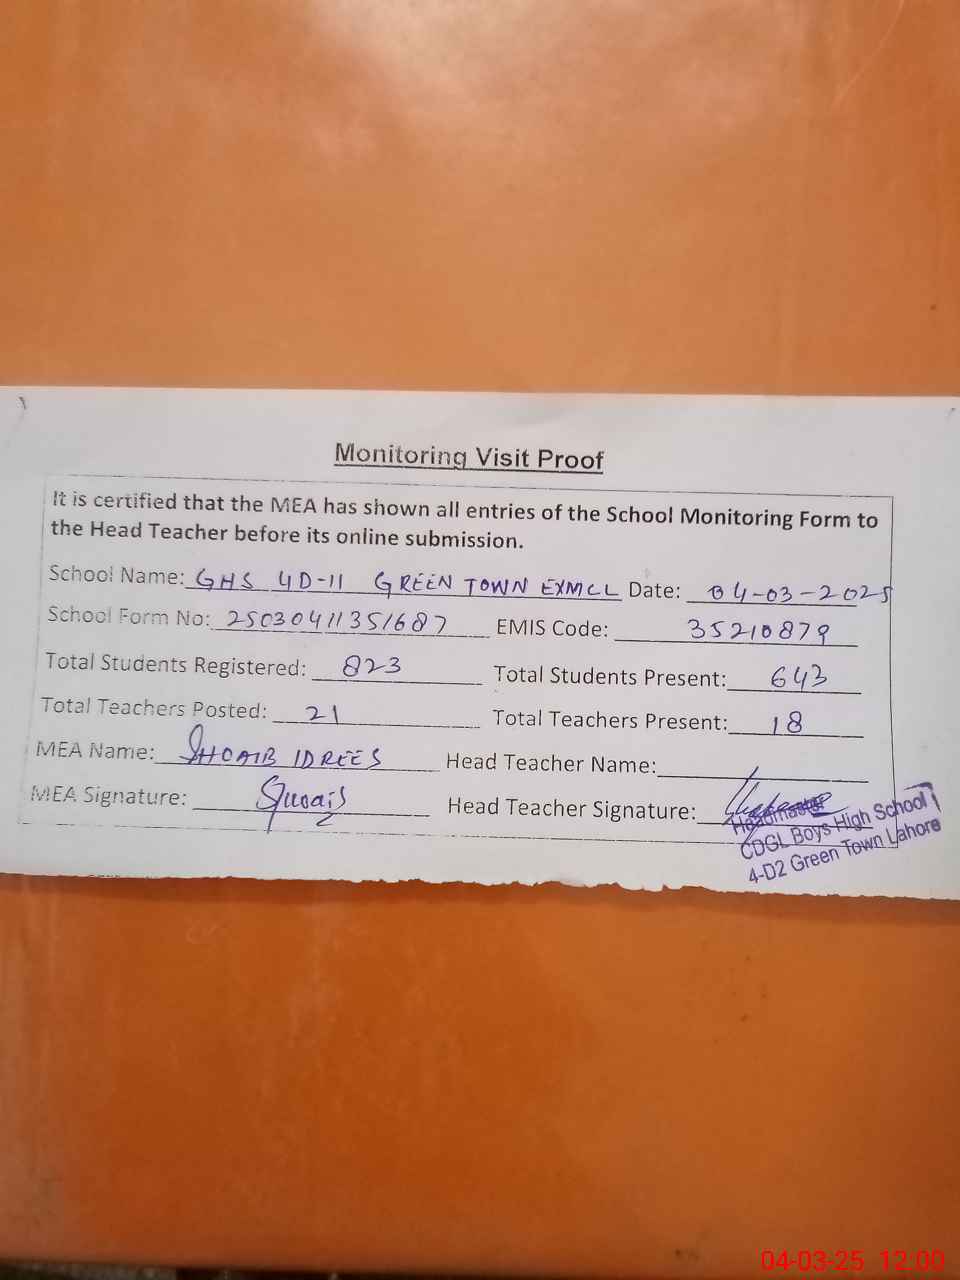 Monitoring Visit Proof
It is certified that the MEA has shown all entries of the School Monitoring Form to
the Head Teacher before its online submission.
School Name: GHS 4D-11 GREEN TOWN EXMCL Date: 04-03-2025
School Form No: 25030411351687 EMIS Code: 35210879
Total Students Registered: 823 Total Students Present: 643
Total Teachers Posted: 21 Total Teachers Present: 18
MEA Name: SHOAIB IDREES Head Teacher Name:
MEA Signature: Shoaib Head Teacher Signature:
Headmaster
CDGL Boys High School
4-D2 Green Town Lahore
04-03-25 12:00